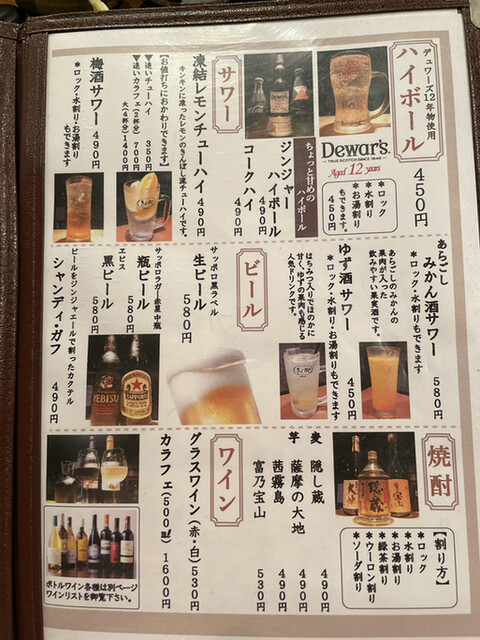 デュワーズ12年物使用
ハイボール
450円
Dewar's.
TRUE SCOTCH SINCE 1846
Aged 12 years
*ロック
*水割り
*お湯割り
もできます。
450円
ちょっと甘めの
ハイボール
ジンジャー
ハイボール
490円
コークハイ
490円
サワー
凍結レモンチューハイ 490円
キンキンに凍ったレモンのきんぼし流チューハイです。
【お値打ちにおかわりできます】
▼追いチューハイ 350円
▼追いカラフェ(2杯分) 700円
大(4杯分) 1400円
梅酒サワー 490円
*ロック・水割り・お湯割り
もできます
あらごし
みかん酒サワー 580円
*ロック・水割り・お湯割りもできます
あらごしのみかんの
果肉が入った
飲みやすい果実酒です。
ゆず酒サワー 450円
*ロック・水割り・お湯割りもできます
はちみつ入りでほのかに
甘く、ゆずの果肉も感じる
人気ドリンクです。
ビール
サッポロ黒ラベル
生ビール
580円
サッポロラガー赤星中瓶
瓶ビール
580円
ヱビス
黒ビール
580円
ビールをジンジャエールで割ったカクテル
シャンディ・ガフ 490円
YEBISU
SAPPORO
焼酎
【割り方】
*ロック
*水割り
*お湯割り
*緑茶割り
*ウーロン割り
*ソーダ割り
隠し蔵
麦 隠し蔵 490円
芋 薩摩の大地 490円
茜霧島 490円
富乃宝山 530円
ワイン
グラスワイン(赤・白) 530円
カラフェ(500㎖) 1600円
ボトルワイン各種は別ページ
ワインリストを御覧下さい。